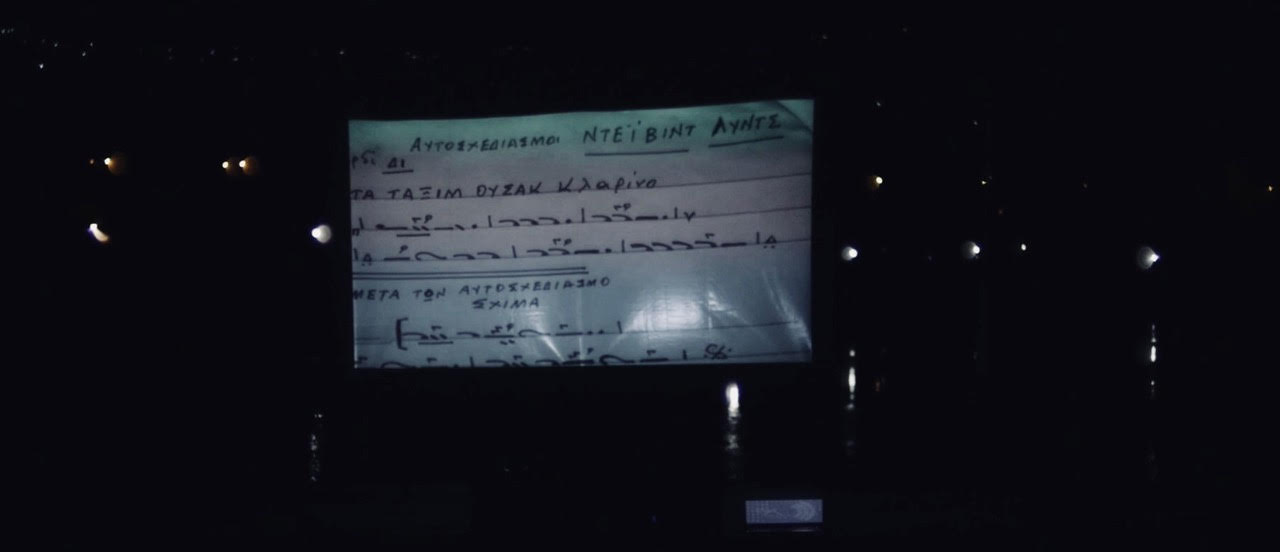 ΑΥΤΟΣΧΕΔΙΑΣΜΟΙ ΝΤΕΪΒΙΝΤ ΛΥΝΤΣ
ΔΙ
ΤΑ ΤΑΞΙΜ ΟΥΣΑΚ Κλαρίνο
ΜΕΤΑ ΤΩΝ ΑΥΤΟΣΧΕΔΙΑΣΜΟ
ΣΧΙΜΑ